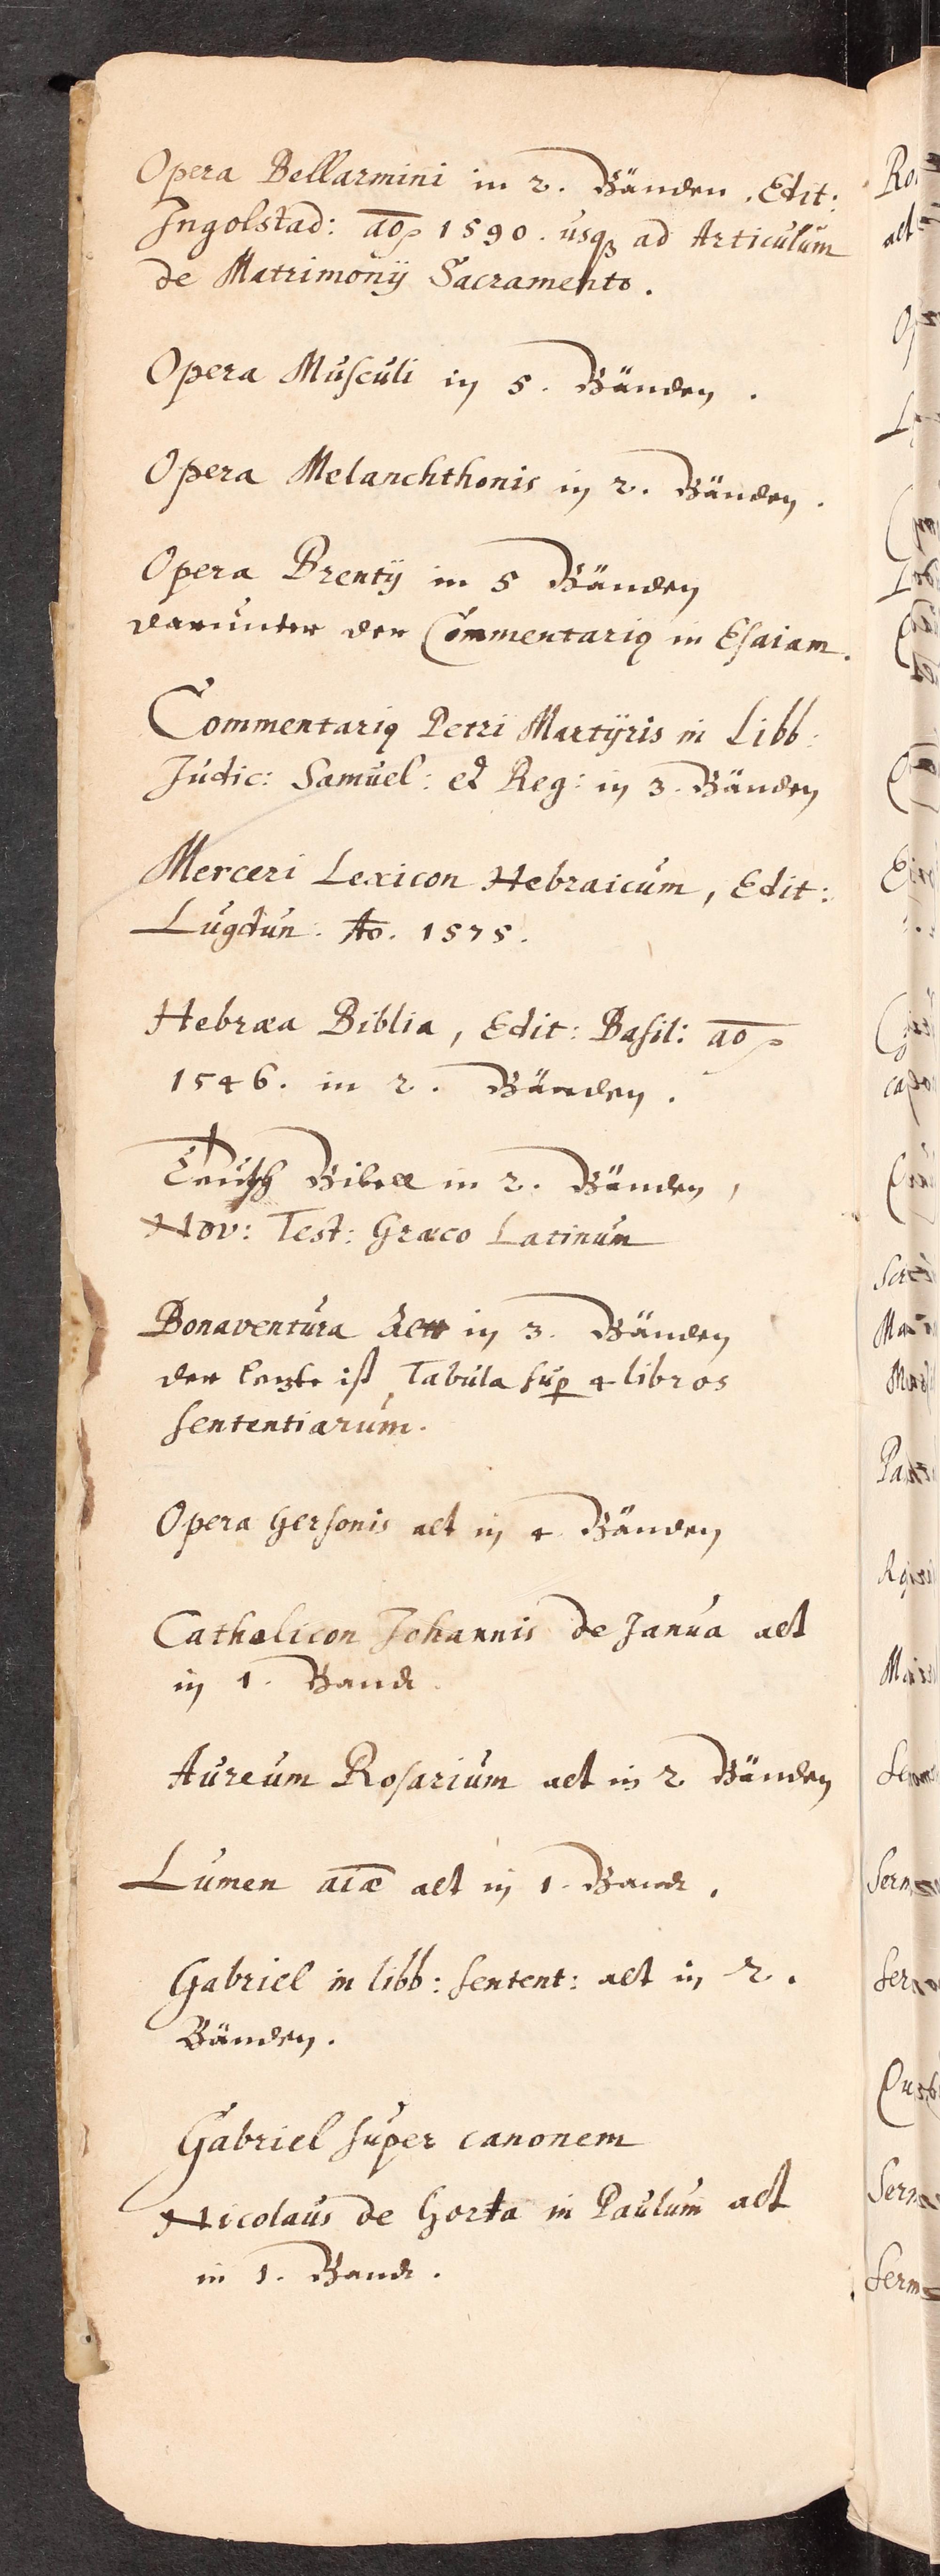 Opera Bellarmini in 2. Bänden. Edit:
Ingolstad: ao 1590. usq; ad Articulum
de Matrimonij Sacramento.
Opera Musculi in 5. Bänden.
Opera Melanchthonis in 2. Bänden.
Opera Brentij in 5 Bänden
darunter der Commentariq in Esaiam.
Commentariq Petri Martyris in Libb:
Judic: Samuel: et Reg: in 3. Bänden
Merceri Lexicon Hebraicum, Edit:
Lugdun. Ao. 1575.
Hebræa Biblia, Edit: Basil: ao
1546. in 2. Bänden.
Teutsch Bibell in 2. Bänden,
Nov: Test: Græco Latinum
Bonaventura alt in 3. Bänden
der letzte ist Tabula sup 4 libros
sententiarum.
Opera Gersonis alt in 4 Bänden
Catholicon Johannis de Janua alt
in 1. Bandt
Aureum Rosarium alt in 2 Bänden
Lumen aiæ alt in 1. Bandt.
Gabriel in libb: sentent: alt in 2.
Bänden.
Gabriel super canonem
Nicolaus de Gorta in Paulum alt
in 1. Bandt.